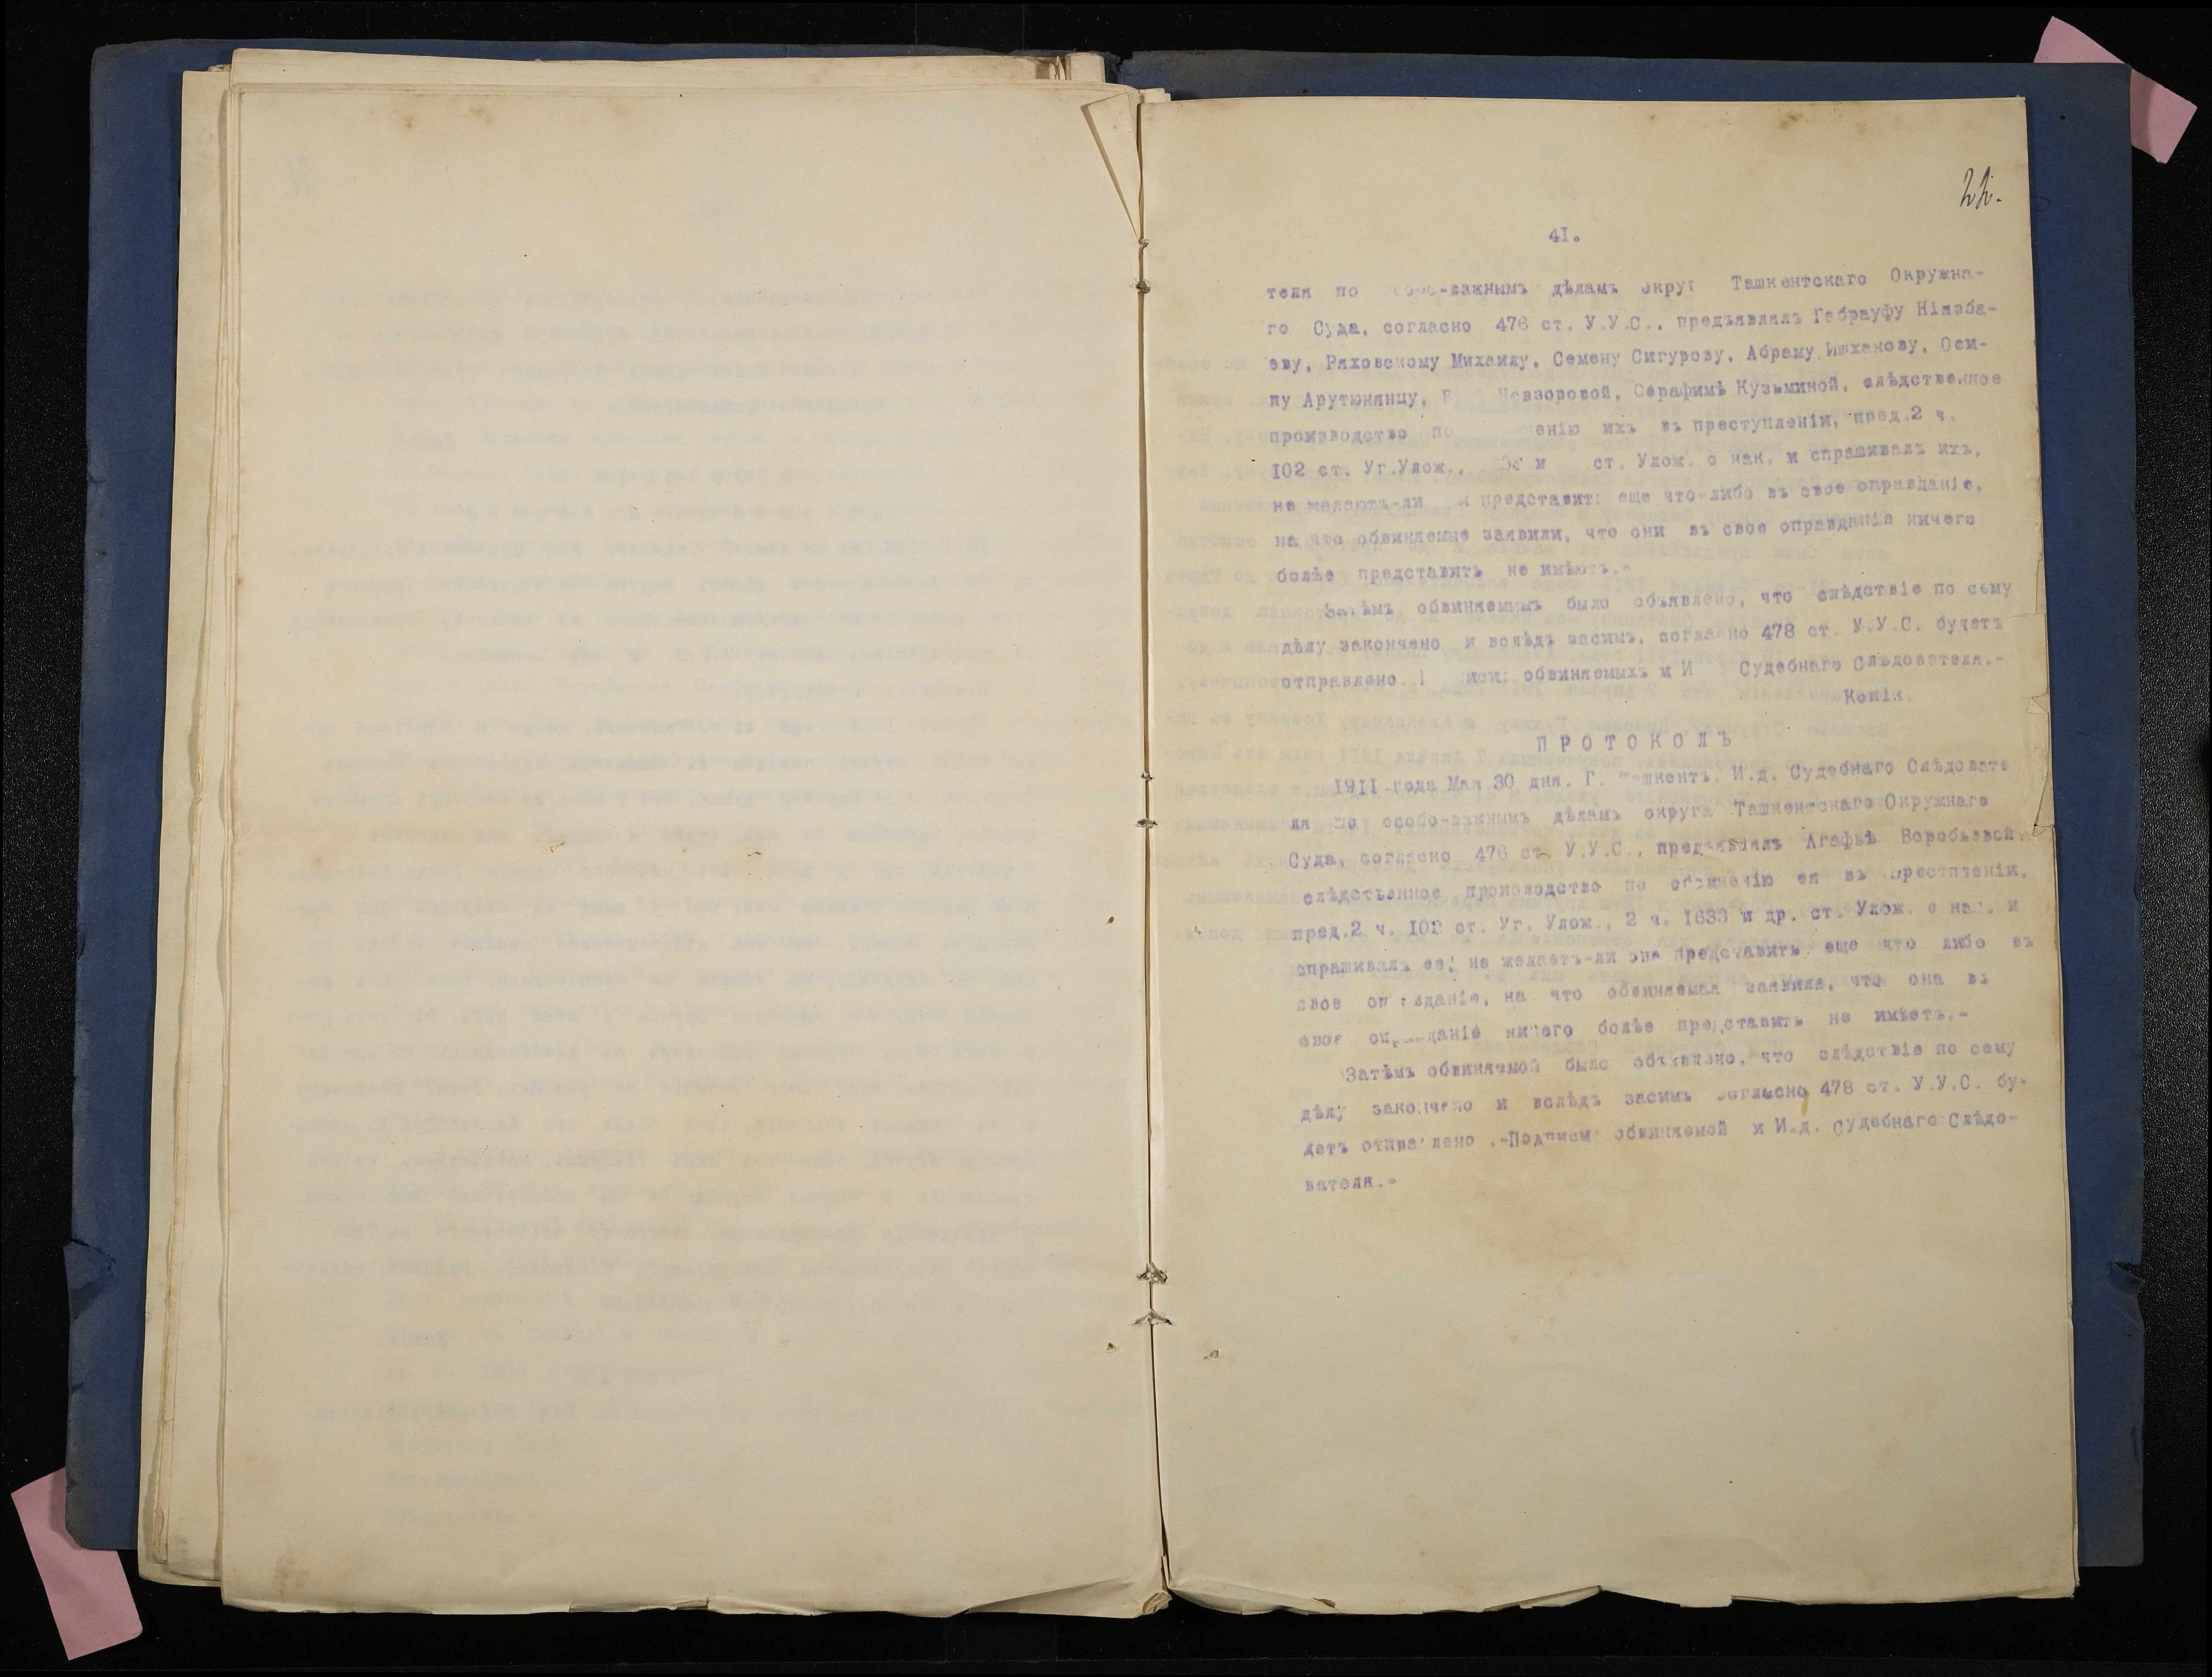 41.
теля по важнымъ дѣламъ округ Ташкентскаго Окружна-
го Суда, согласно 476 ст. У.У.С., предъявлялъ Габрауфу Ніязба-
еву, Ряховскому Михаилу, Семену Сигурову, Абраму Ишханову, Оси-
пу Арутюнянцу, Невзоровой, Серафимѣ Кузьминой, слѣдственное
производство по ихъ въ преступленіи, пред.2 ч.
102 ст. Уг.Улож., и ст. Улож. о нак. и спрашивалъ ихъ,
не желаютъ-ли представить еще что-либо въ свое оправданіе,
на что обвиняемые заявили, что они въ свое оправданіе ничего
болѣе представить не имѣютъ.-
Затѣмъ обвиняемымъ было объявлено, что слѣдствіе по сему
дѣлу закончено и вслѣдъ засимъ, согласно 478 ст. У.У.С. будетъ
отправлено. обвиняемыхъ и И Судебнаго Слѣдователя.-
Копія.
ПРОТОКОЛЪ
1911 года Мая 30 дня. Г. Ташкентъ. И.д. Судебнаго Слѣдовате
ля по особо-важнымъ дѣламъ округа Ташкентскаго Окружнаго
Суда, согласно 476 ст. У.У.С., предъявлялъ Агафьѣ Воробьевой
слѣдственное производство по обвиненію ея въ престпленіи,
пред.2 ч. 102 ст. Уг. Улож., 2 ч. 1633 и др. ст. Улож. о нак. и
спрашивалъ ее, не желаетъ-ли она представить еще что либо въ
свое оправданіе, на что обвиняемая заявила, что она въ
свое оправданіе ничего болѣе представить не имѣетъ.-
Затѣмъ обвиняемой было объявлено, что слѣдствіе по сему
дѣлу закончено и вслѣдъ засимъ согласно 478 ст. У.У.С. бу-
детъ отправлено .-Подписи обвиняемой и И.д. Судебнаго Слѣдо-
вателя.-